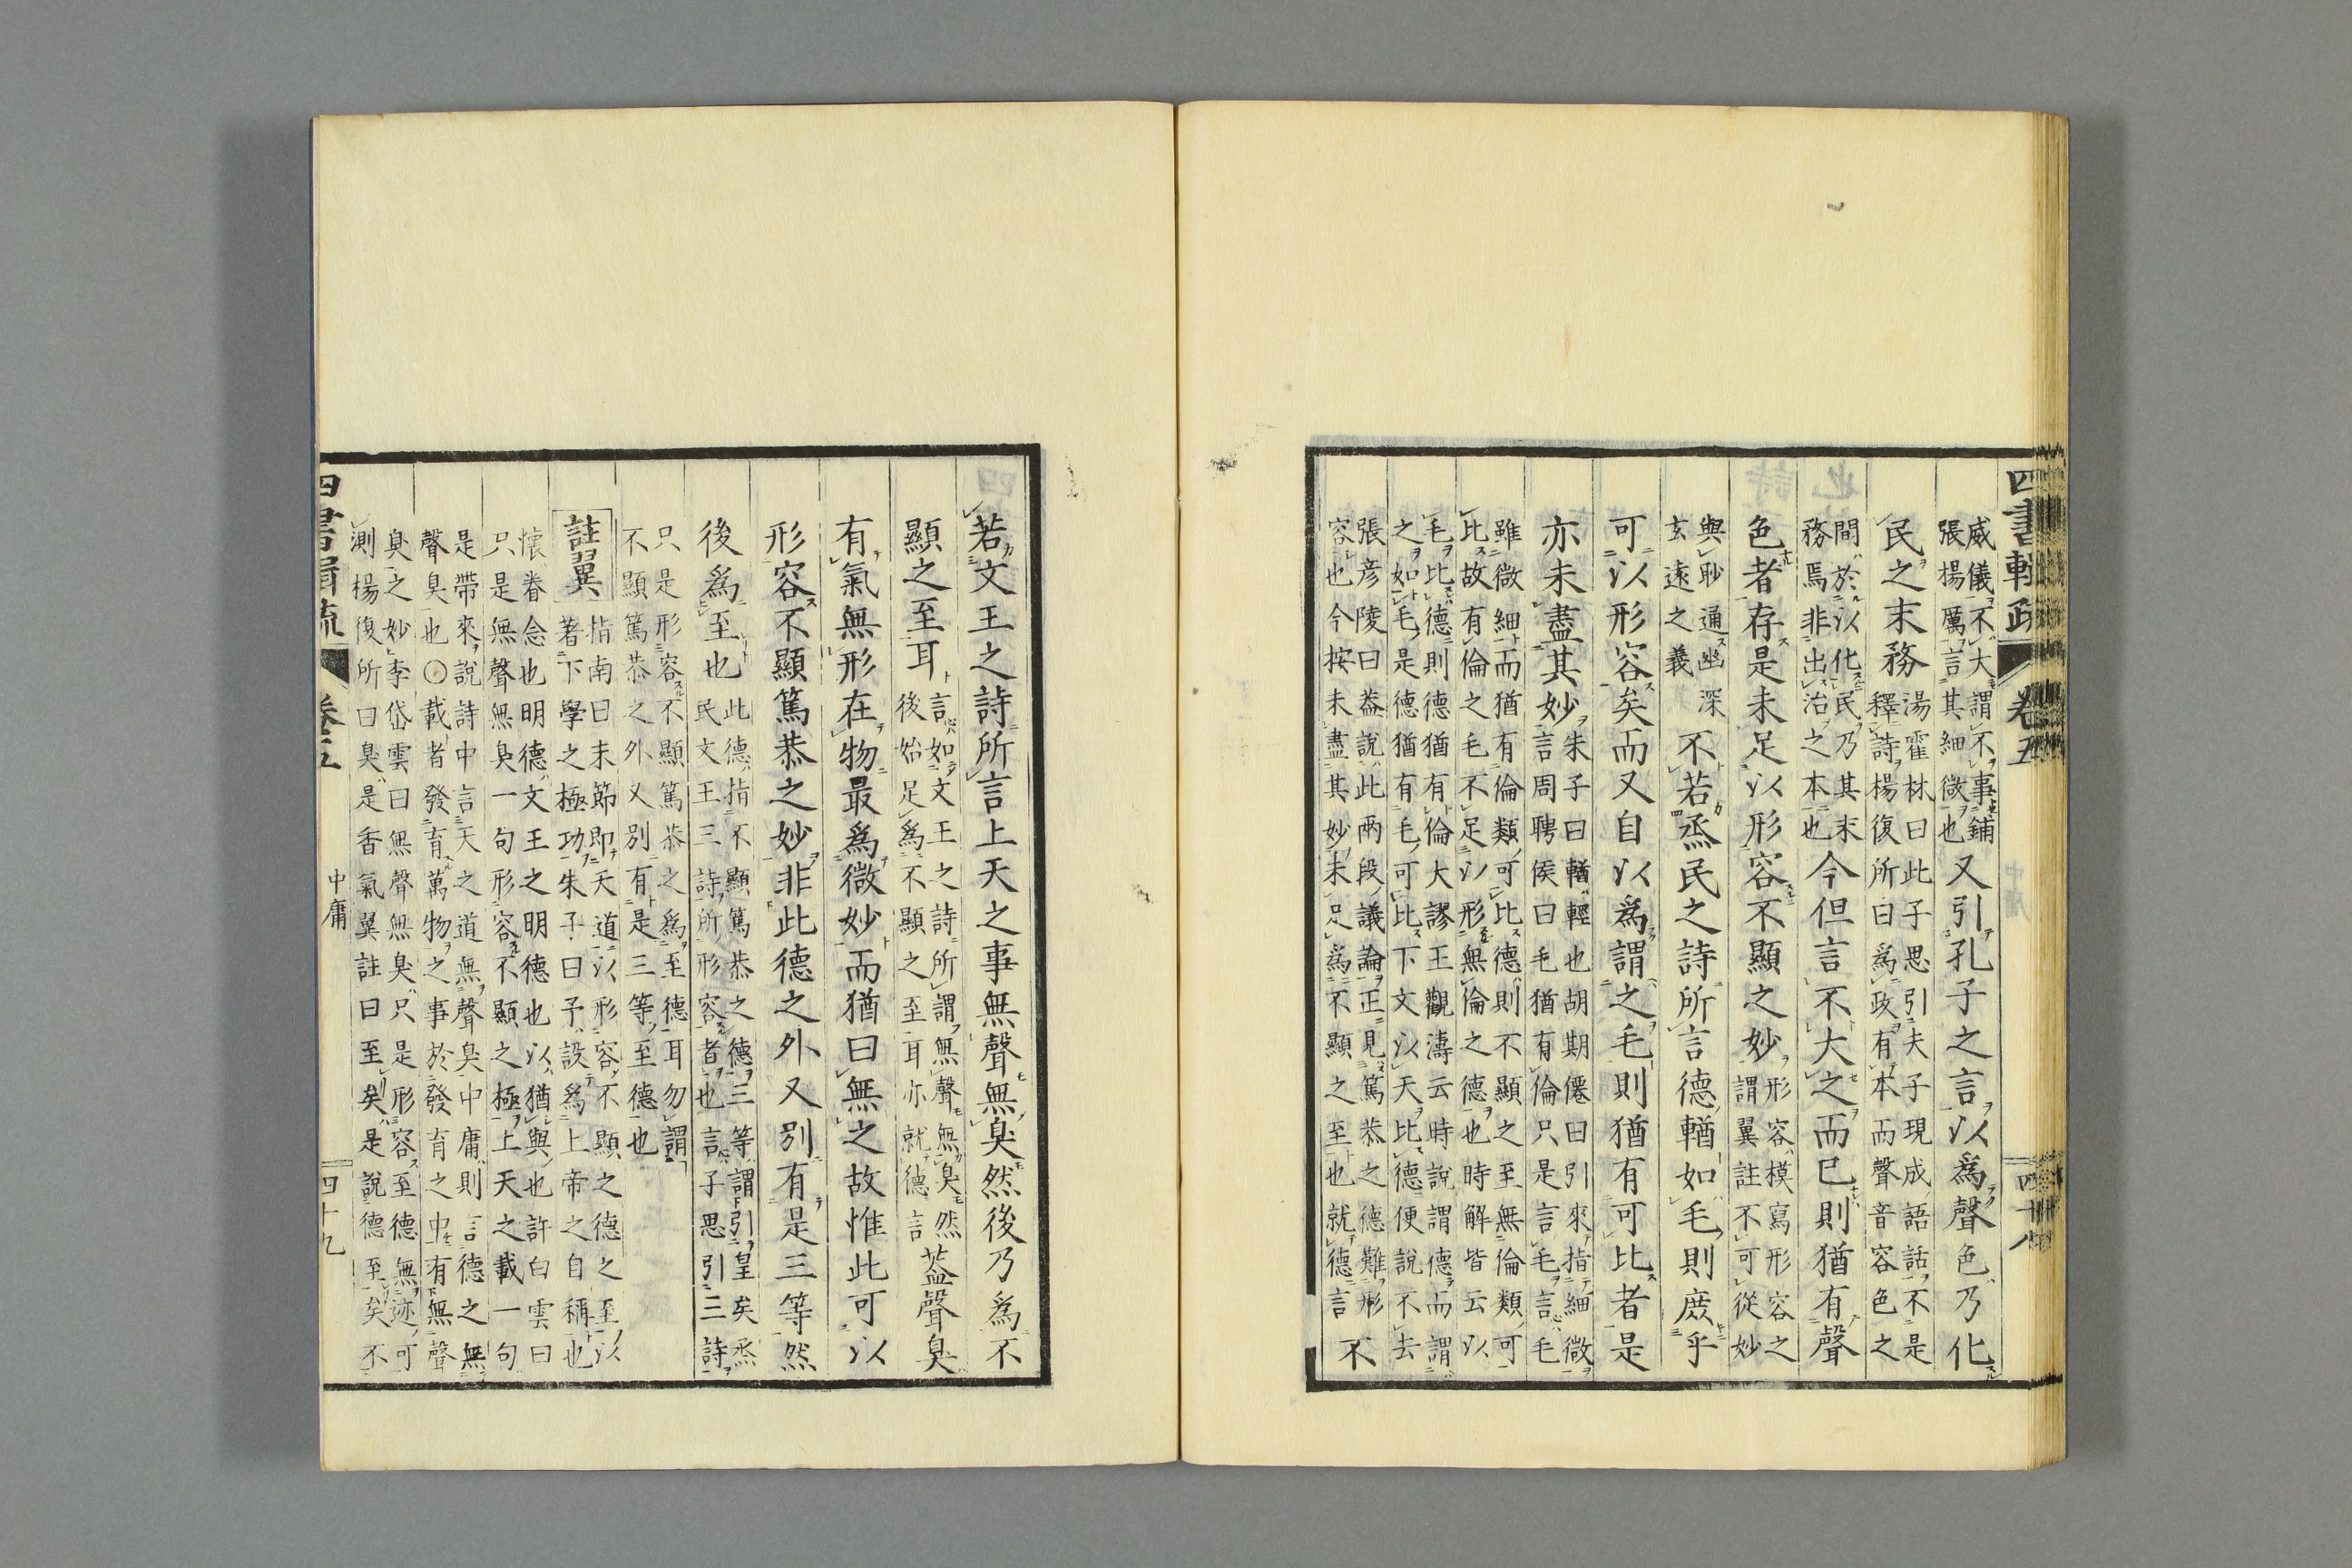 四書輯疏 卷五 四十八
威儀不大謂不事鋪張揚厲言其細微也又引孔子之言以爲聲色乃化
民之末務湯霍林曰此子思引夫子現成語話不是釋詩楊復所曰爲政有本而聲音容色之
間於以化民乃其末務焉非出治之本也今但言不大之而已則猶有聲
色者存是未足以形容不顯之妙形容模寫形容之謂翼註不可從妙
與眇通幽深玄遠之義不若烝民之詩所言德輶如毛則庶乎
可以形容矣而又自以爲謂之毛則猶有可比者是
亦未盡其妙朱子曰輶輕也胡期僊曰引來指細微言周聘侯曰毛猶有倫只是言毛言毛
雖微細而猶有倫類可比德則不顯之至無倫類可比故有倫之毛不足以形無倫之德也時解皆云以
毛比德則德猶有倫大謬王觀濤云時說謂德而謂之如毛是德猶有毛可比下文以天比德便說不去
張彥陵曰葢說此兩段議論正見篤恭之德難形容也今按未盡其妙未足爲不顯之至也就德言不
若文王之詩所言上天之事無聲無臭然後乃爲不
顯之至耳言如文王之詩所謂無聲無臭然後始足爲不顯之至耳亦就德言葢聲臭
有氣無形在物最爲微妙而猶曰無之故惟此可以
形容不顯篤恭之妙非此德之外又別有是三等然
後爲至也此德指不顯篤恭之德三等謂引皇矣烝民文王三詩所形容者也言子思引三詩
只是形容不顯篤恭之爲至德耳勿謂不顯篤恭之外又別有是三等至德也
註翼指南曰末節即天道以形容不顯之德之至以著下學之極功朱子曰予設爲上帝之自稱也
懷眷念也明德文王之明德也以猶與也許白雲曰只是無聲無臭一句形容不顯之極上天之載一句
是帶來說詩中言天之道無聲臭中庸則言德之無聲臭也〇載者發育萬物之事於發育之中有無聲
臭之妙李岱雲曰無聲無臭只是形容至德無迹可測楊復所曰臭是香氣翼註曰至矣是說德至矣不
四書輯疏 卷五 中庸 四十九